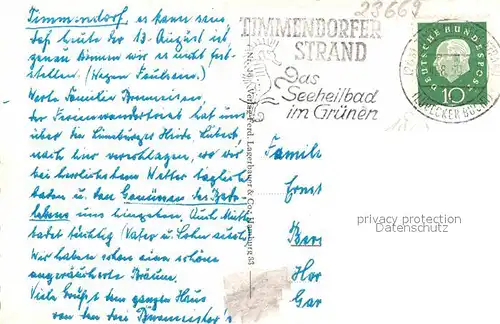 Timmendorf, es kann sein
daß heute der 13. August ist
genau können wir es nicht fest-
stellen. (Wegen Faulsein.)
Werte Familie
der Ferienwandertrieb hat uns
über die Lüneburger Heide, Lübeck
nach hier verschlagen, wo wir
bei herrlichstem Wetter täglich
baden u. den Genüssen des Bade-
lebens uns hingeben. Auch Mutti
badet tüchtig (Vater u. Sohn auch).
Wir haben schon eine schöne
angeräucherte Bräune.
Viele Grüße dem ganzen Haus
von den drei
23669
TIMMENDORFER
STRAND
Das
Seeheilbad
im Grünen
DEUTSCHE BUNDESPOST
10
LÜBECKER BUCHT
Lagerbauer & Co., Hamburg 33
Familie
Ernst
Hor
Gar
privacy protection
Datenschutz